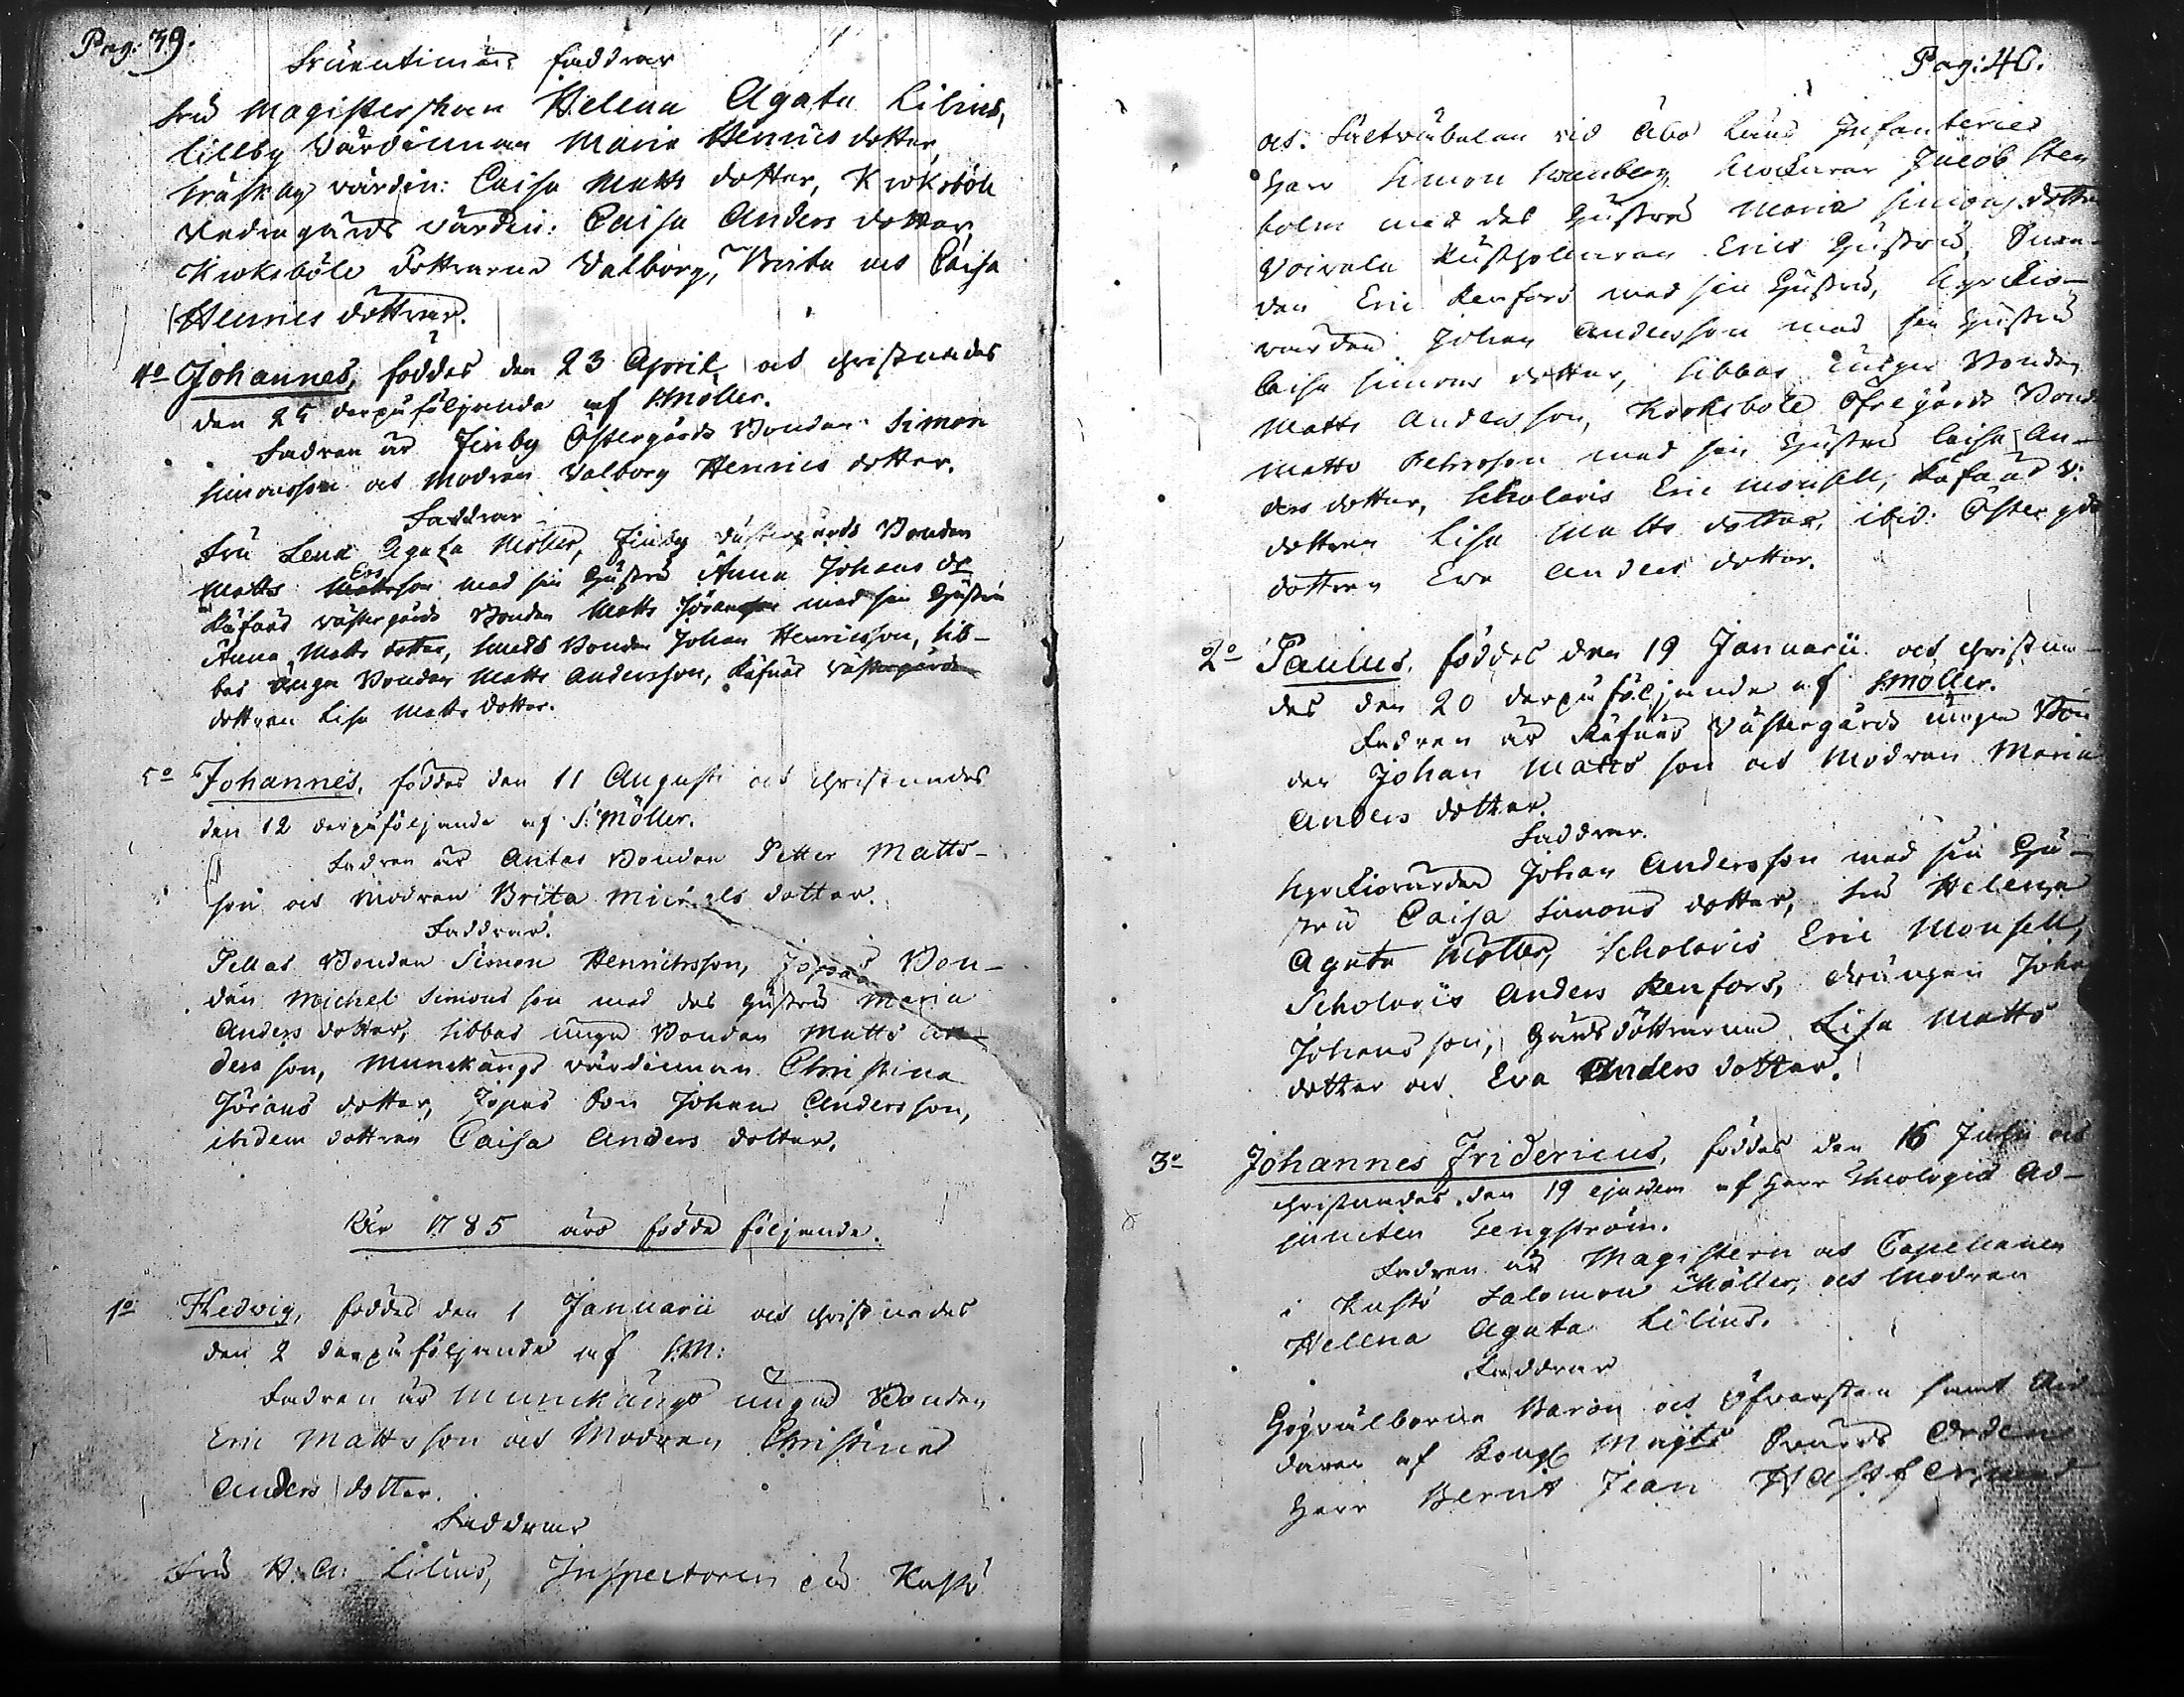 Pag: 39.
Fruentimers faddrar
Fru Magisterskan Helena Agata Lilius,
Lillby Värdinnan Maria Henrics dotter,
Träskby värdin: Caisa Matts dotter, Krokböle
Nedergårds värdin: Caisa Anders dotter,
Kroksböle döttrarne Valborg, Brita och Caisa
Henrics döttrar.
4o Johannes, föddes den 23 April, och christnades
den 25 derpåföljande af S: Möller.
Fadren är Finby Östergårds Bonden Simon
Simonsson och Modren Valborg Henrics dotter.
Faddrar
Fru Lena Agata Möller, Finby Västergårds Bonden
Matts Ersson med sin Hustru Anna Johans dr
Räfnäs västergårds Bonden Matts Jöransson med sin Hustru
Anna Matts dotter, Smeds Bonden Johan Henricsson, Sib-
bas unga Bonden Matts Andersson, Räfnäs västergårds
dottren Lisa Matts dotter.
5o Johannes, föddes den 11 Augusti och christnades
den 12 derpåföljande af S: Möller.
Fadren är Antas Bonden Petter Matts-
son och Modren Brita Michels dotter.
Faddrar.
Pellas Bonden Simon Henrichsson, Jopas Bon-
den Michel Simons son med des hustru Maria
Anders dotter, Sibbas unga Bonden Matts An-
ders son, Munkängs värdinnan Christina
Jörans dotter, Jopas Son Johan Andersson,
ibidem dottren Caisa Anders dotter.
År 1785 äro födde följande.
1o Hedvig, föddes den 1 Januarii och christnades
den 2 derpåföljande af S.M:
Fadren är Munkängs unga Bonden
Eric Matts son och Modren Christina
Anders dotter.
Faddrar
Fru H: A: Lilius, Inspectoren på Kustö
Pag: 40.
och Fältväbelen vid Åbo Läns Infanterie
Herr Simon Klockaren Jacob Sten
holm med des Hustru Maria Simons dotter
Voivala Rusthollaren Erics Hustru,
den Eric Renfors med sin Hustru,
värden Johan Andersson med sin hustru
Caisa Simons dotter, Sibbas unga Bonden
Matts Andersson, Kroksböle Öfregårds Bond
Matts Petersson med sin Hustru Caisa An-
ders dotter, Scholaris Eric Monsell, Räfnäs V:
dottren Lisa Matts dotter, ibid: Östergds
dottren Eva Anders dotter.
2o Paulus, föddes den 19 Januarii och christna-
des den 20 derpåföljande af S: Möller.
Fadren är Räfnäs Västergårds unga Bon
den Johan Matts son och Modren Maria
Anders dotter.
Faddrar.
värden Johan Andersson med sin Hu-
stru Caisa Simons dotter, Fru Helena
Agata Möller, Scholaris Eric Monsell,
Scholaris Anders Renfors, drängen Johan
Johans son, Gårds döttrarne Lisa Matts
dotter och Eva Anders dotter.
3o Johannes Fridericus, föddes den 16 Julii och
christnades den 19 ejusdem af Herr Theologiæ Ad-
juncten Tengström.
Fadren är Magistern och Capellanen
i Kustö Salomon Möller, och Modren
Helena Agata Lilius.
Faddrar
Högvälborne Baron och Öfversten samt Rid-
daren af Kongl Maijts Svärds Orden
Herr Bernt Jean Hastfer med